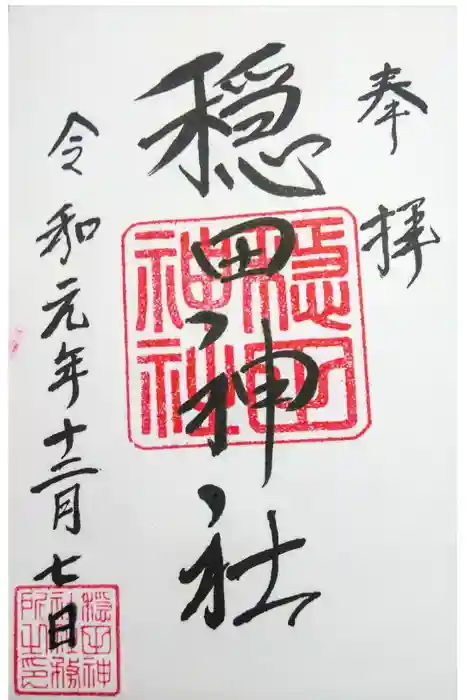 奉拝
穏田神社
令和元年十二月七日
穏田
神社
穏田神
社社務
所之印